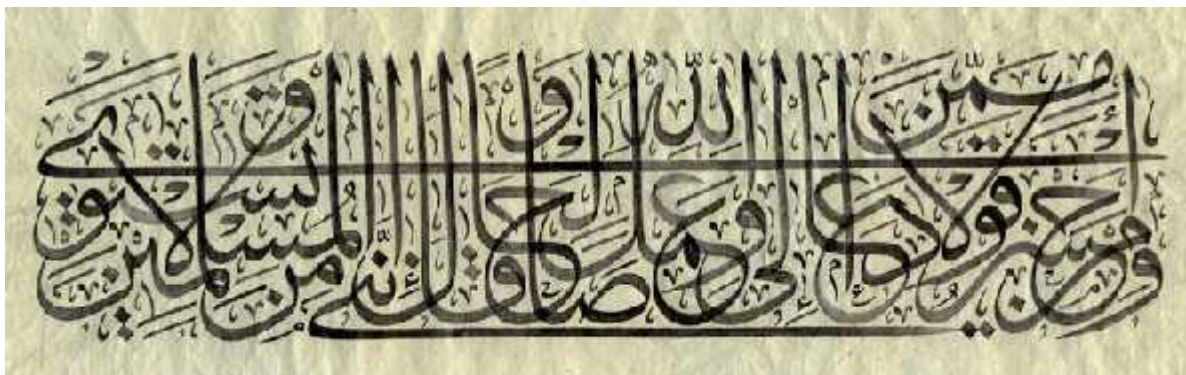 ومن أحسن قولا ممن دعا إلى الله وعمل صالحا وقال إنني من المسلمين